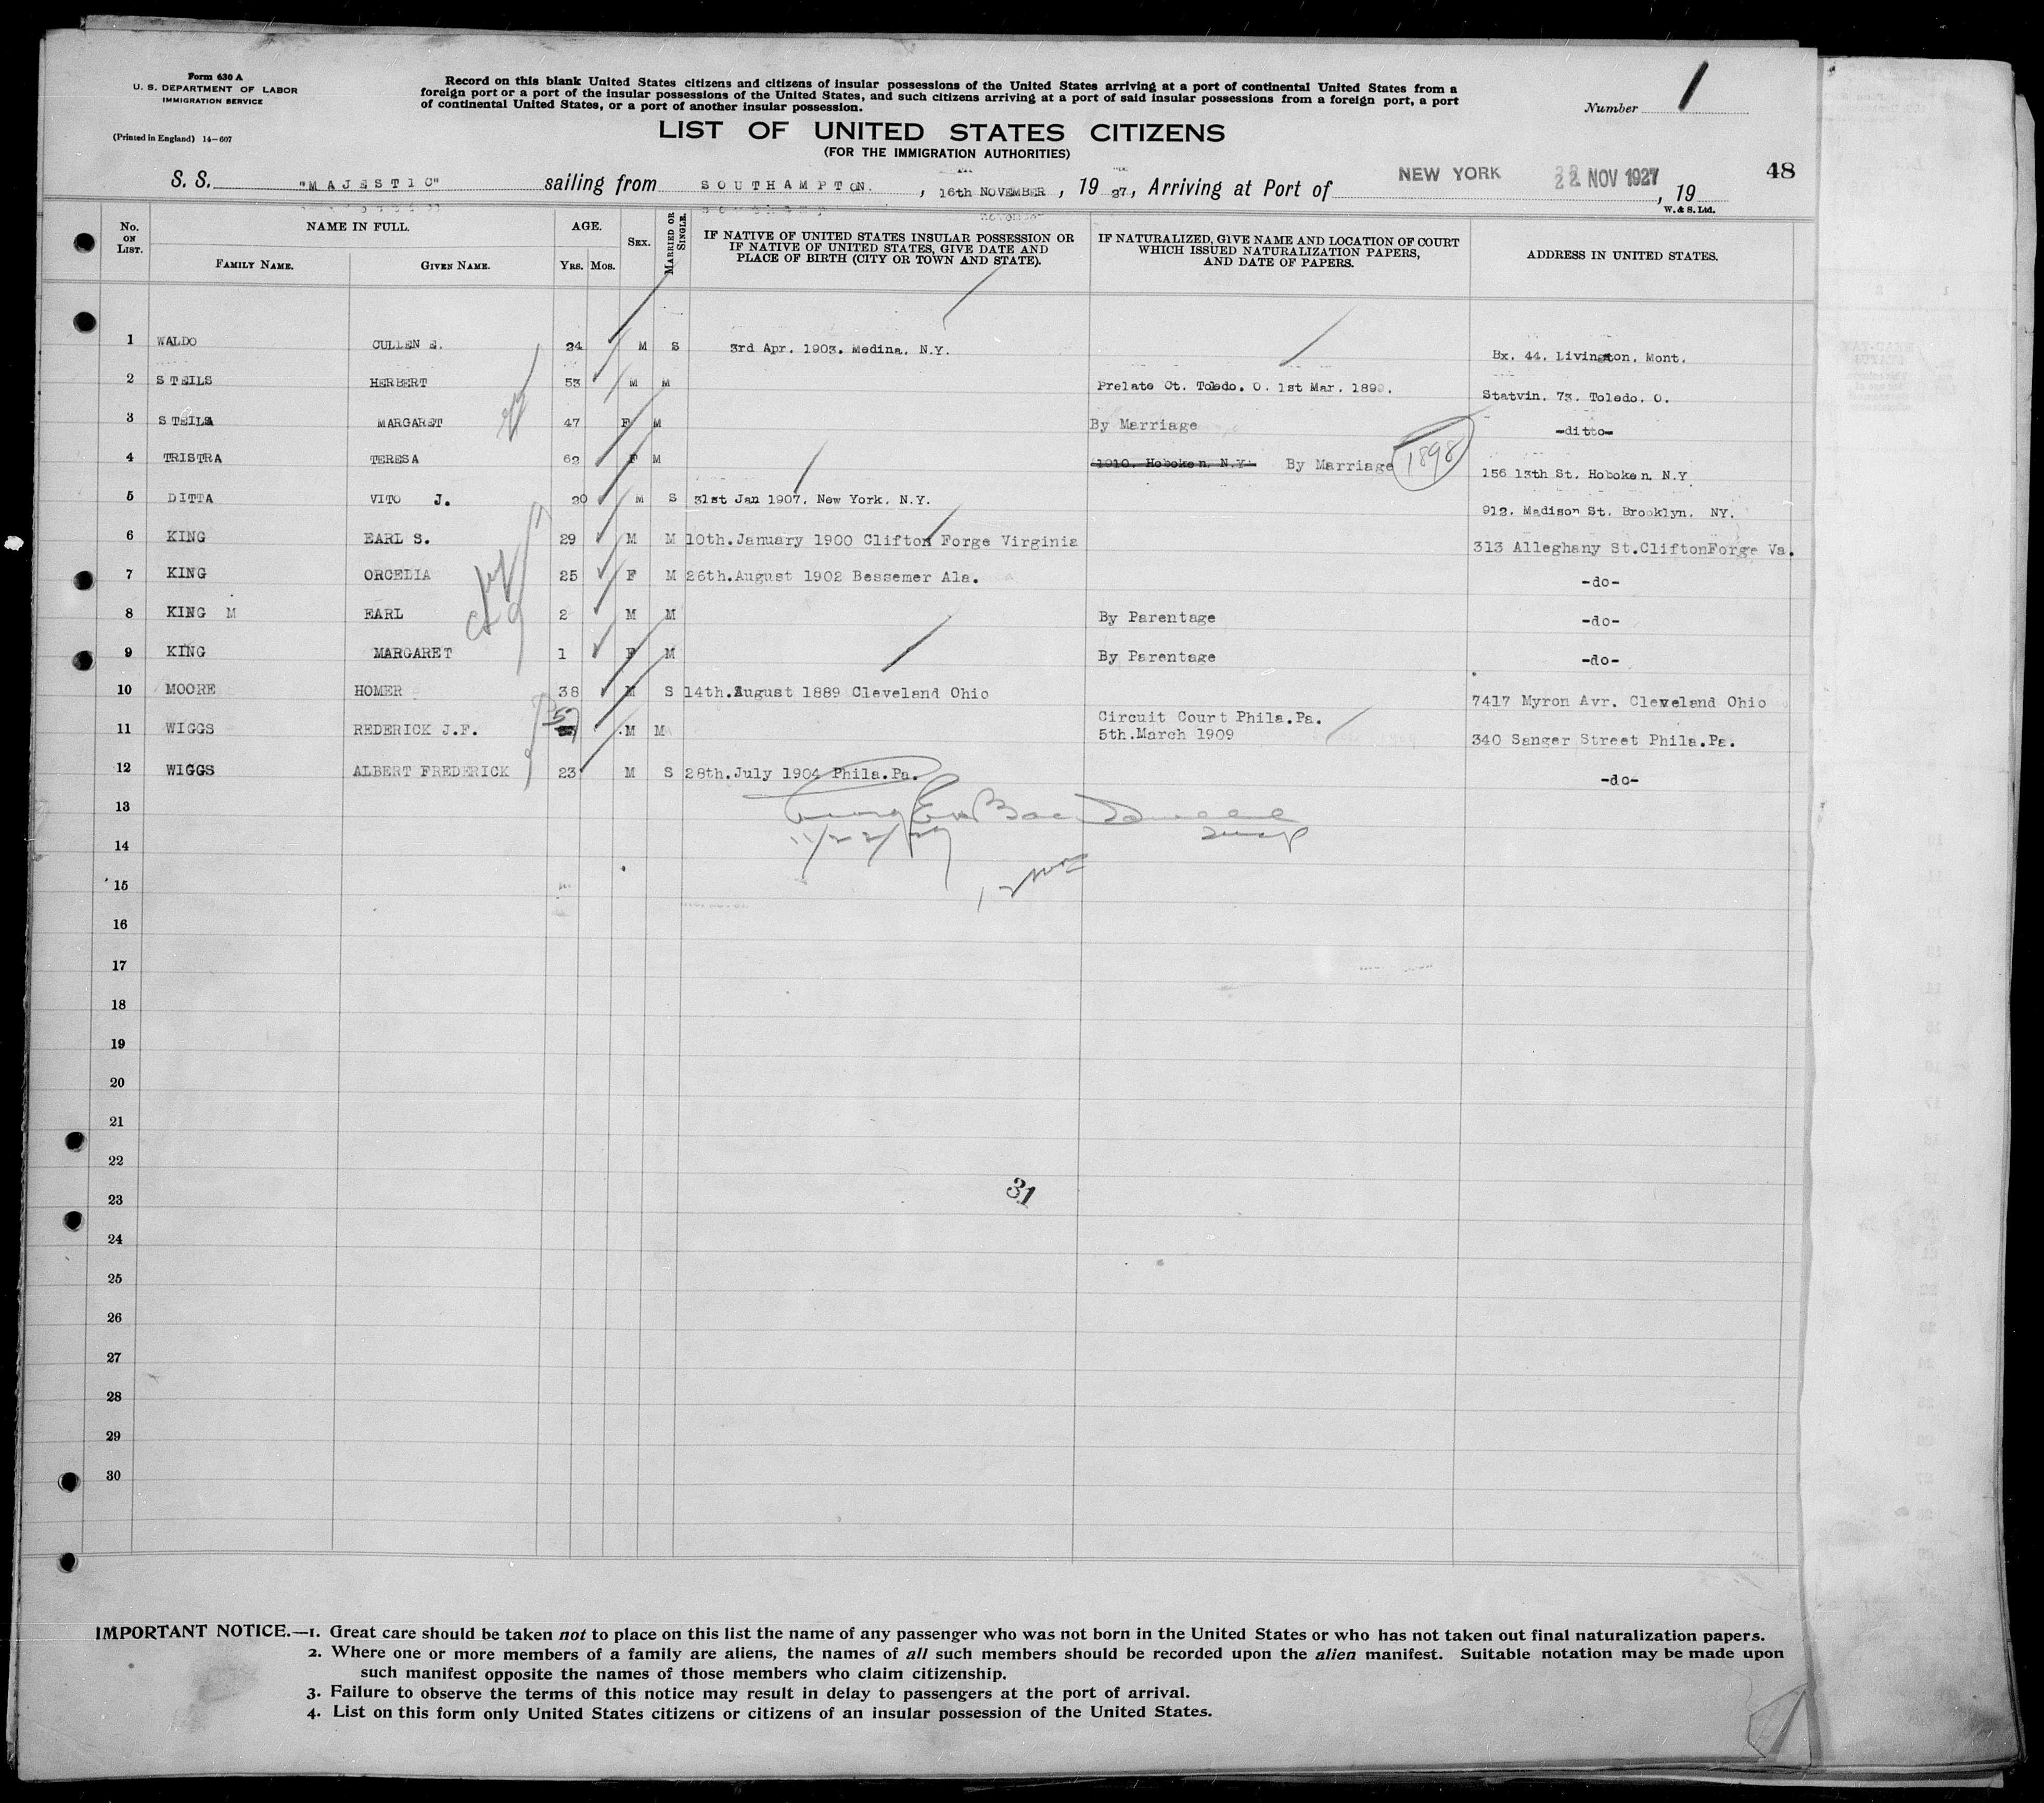 Form 630 A
U. S. DEPARTMENT OF LABOR
IMMIGRATION SERVICE
(Printed in England) 14—607
Record on this blank United States citizens and citizens of insular possessions of the United States arriving at a port of continental United States from a
foreign port or a port of the insular possessions of the United States, and such citizens arriving at a port of said insular possessions from a foreign port, a port
of continental United States, or a port of another insular possession.
Number 1
LIST OF UNITED STATES CITIZENS
(FOR THE IMMIGRATION AUTHORITIES)
S. S. "MAJESTIC" sailing from SOUTHAMPTON. , 16th NOVEMBER , 19 27, Arriving at Port of NEW YORK 22 NOV 1927 , 19
48
W. & S. Ltd.
No. ON LIST.
NAME IN FULL.
FAMILY NAME. GIVEN NAME.
AGE.
YRS. MOS.
SEX.
MARRIED OR SINGLE.
IF NATIVE OF UNITED STATES INSULAR POSSESSION OR
IF NATIVE OF UNITED STATES, GIVE DATE AND
PLACE OF BIRTH (CITY OR TOWN AND STATE).
IF NATURALIZED, GIVE NAME AND LOCATION OF COURT
WHICH ISSUED NATURALIZATION PAPERS,
AND DATE OF PAPERS.
ADDRESS IN UNITED STATES.
1 WALDO CULLEN E. 24 M S 3rd Apr. 1903. Medina. N.Y. Bx. 44. Livingston. Mont.
2 STEILS HERBERT 53 M M Prelate Ct. Toledo. O. 1st Mar. Statvin. 73. Toledo. O.
3 STEILS MARGARET 47 F M By Marriage -ditto-
4 TRISTRA TERESA 62 F M 1910. Hoboken. N.Y. By Marriage 1898 156 13th St. Hoboken. N.Y
5 DITTA VITO J. 20 M S 31st Jan 1907. New York. N.Y. 912. Madison St. Brooklyn. NY.
6 KING EARL S. 29 M M 10th.January 1900 Clifton Forge Virginia 313 Alleghany St.CliftonForge Va.
7 KING ORCELIA 25 F M 26th.August 1902 Bessemer Ala. -do-
8 KING M EARL 2 M M By Parentage -do-
9 KING MARGARET 1 F M By Parentage -do-
10 MOORE HOMER 38 M S 14th.August 1889 Cleveland Ohio 7417 Myron Avr. Cleveland Ohio
11 WIGGS REDERICK J.F. 57 M M Circuit Court Phila.Pa.
5th.March 1909 340 Sanger Street Phila.Pa.
12 WIGGS ALBERT FREDERICK 23 M S 28th.July 1904 Phila.Pa. -do-
13
11/22/27
14
15
16
17
18
19
20
21
22
23
31
24
25
26
27
28
29
30
IMPORTANT NOTICE.—1. Great care should be taken not to place on this list the name of any passenger who was not born in the United States or who has not taken out final naturalization papers.
2. Where one or more members of a family are aliens, the names of all such members should be recorded upon the alien manifest. Suitable notation may be made upon
such manifest opposite the names of those members who claim citizenship.
3. Failure to observe the terms of this notice may result in delay to passengers at the port of arrival.
4. List on this form only United States citizens or citizens of an insular possession of the United States.